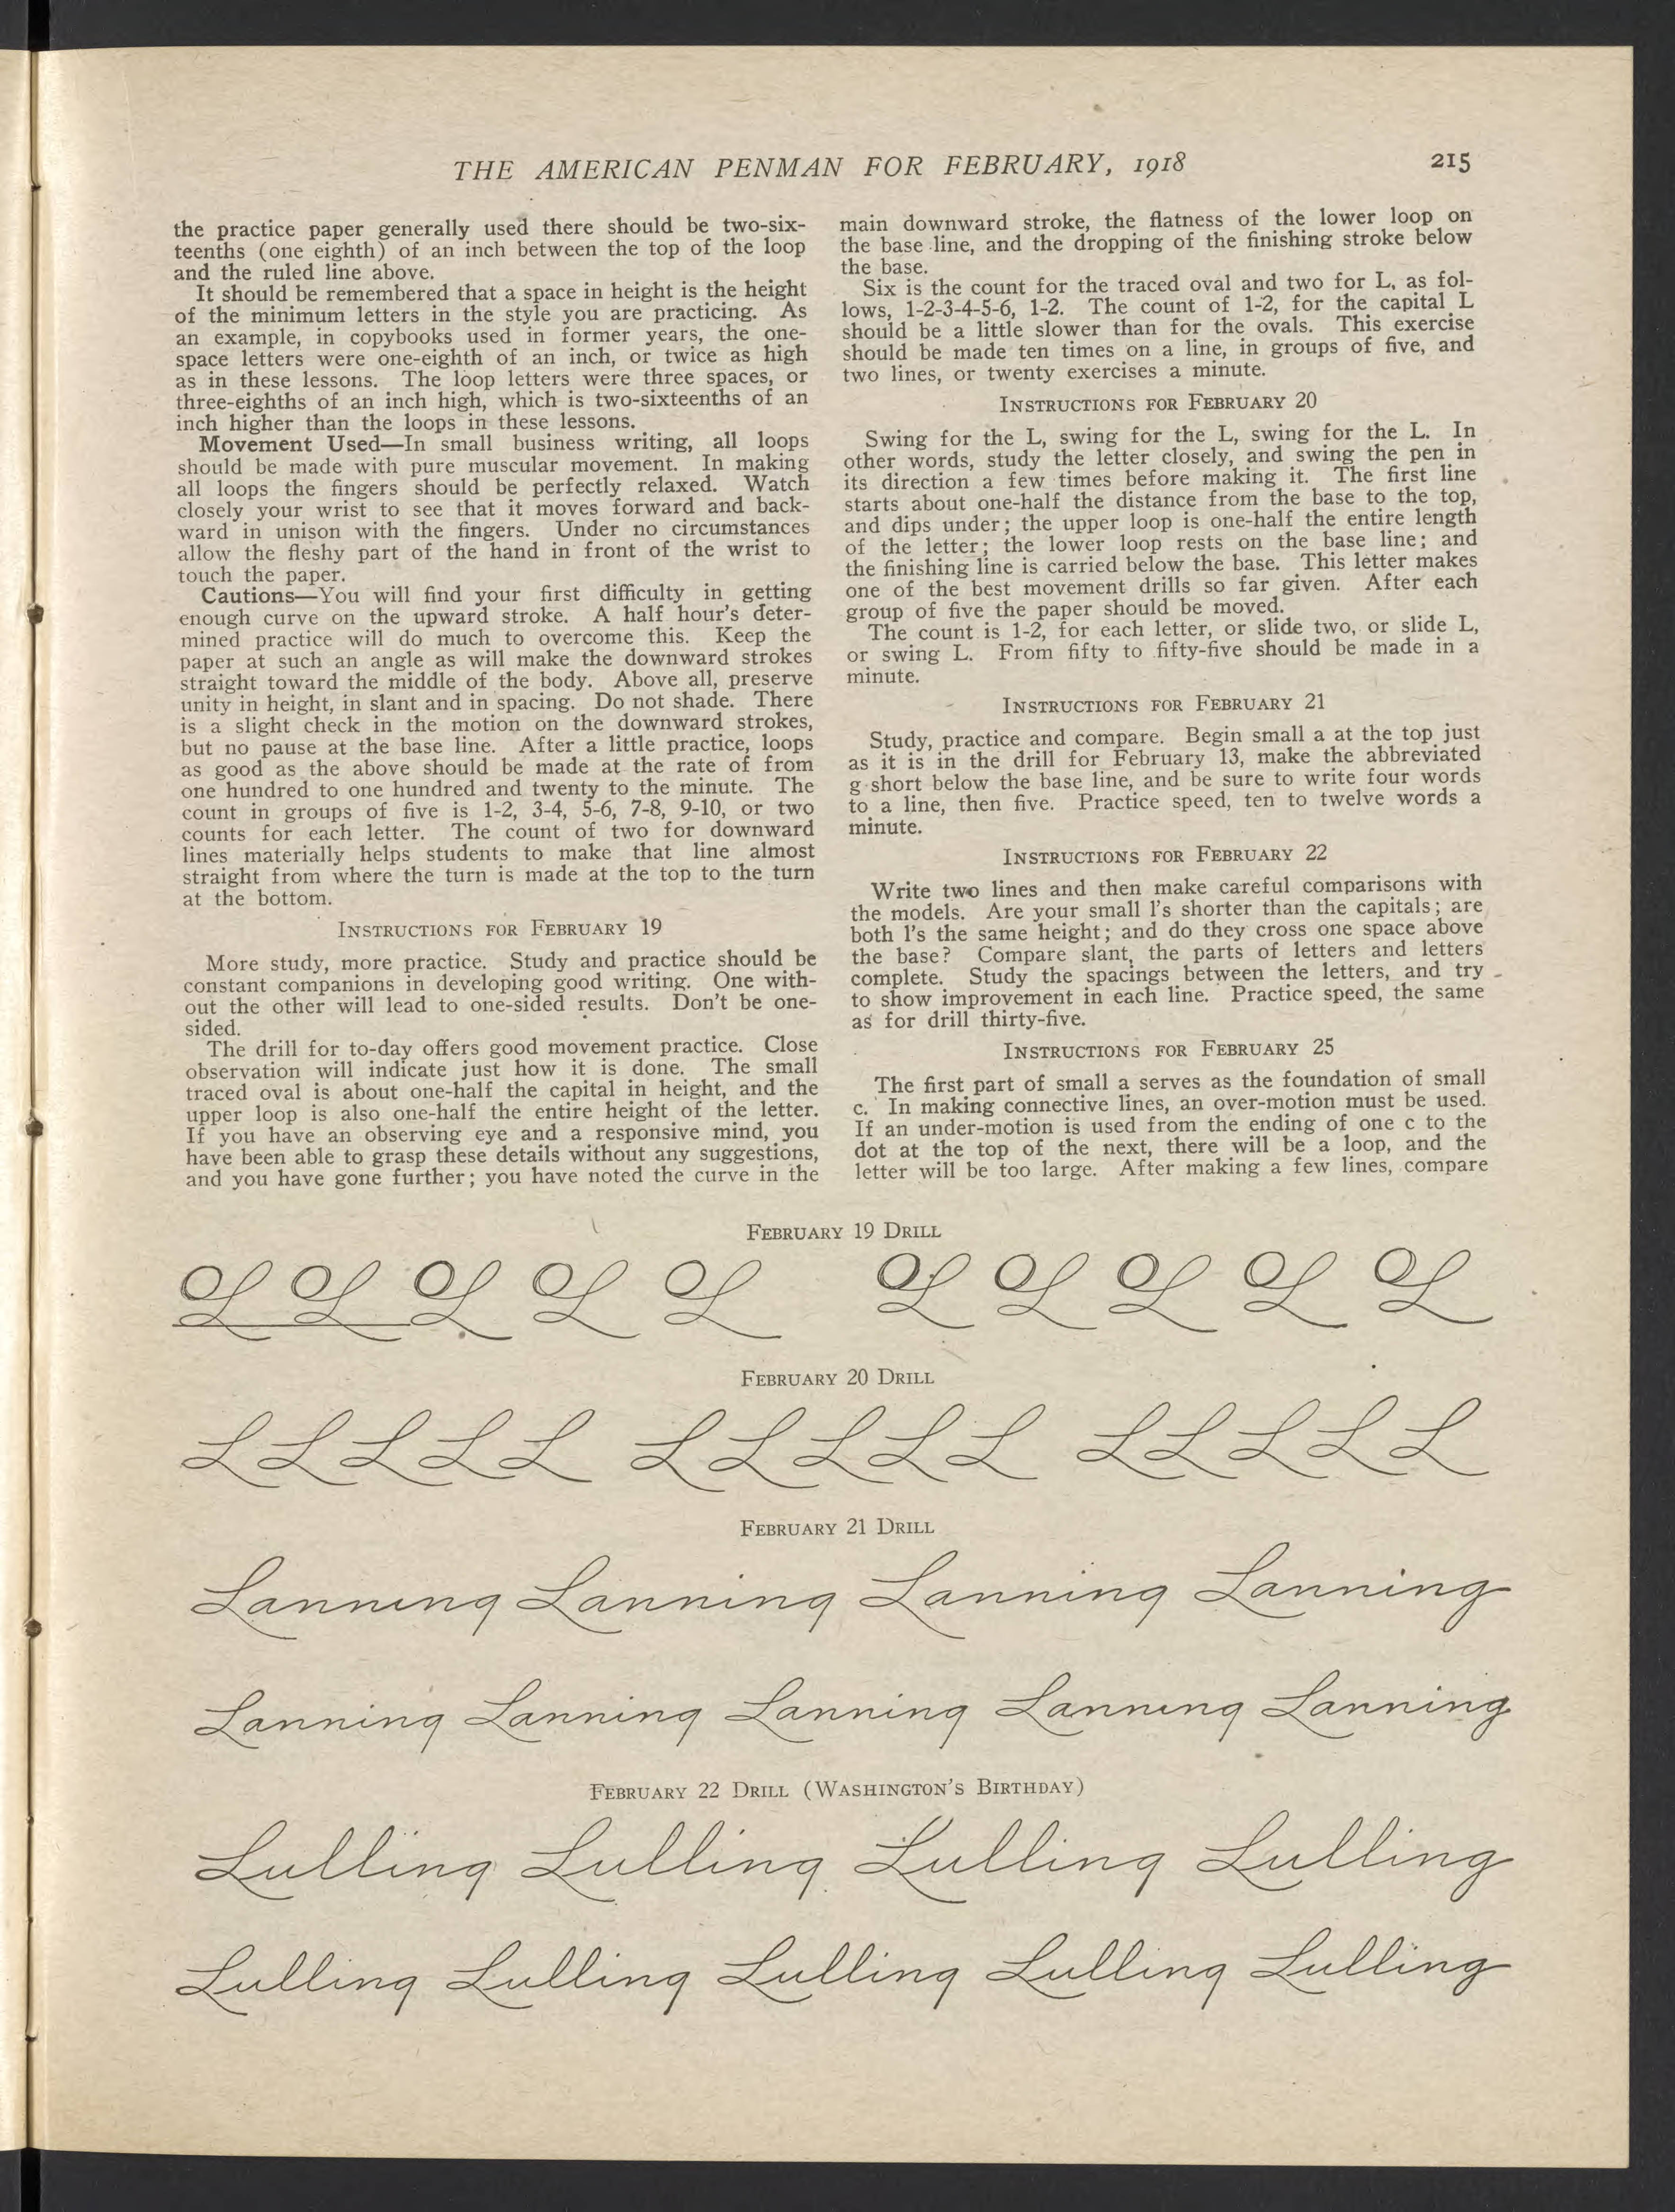 THE AMERICAN PENMAN FOR FEBRUARY, 1918
215
the practice paper generally used there should be two-six-
teenths (one eighth) of an inch between the top of the loop
and the ruled line above.
It should be remembered that a space in height is the height
of the minimum letters in the style you are practicing. As
an example, in copybooks used in former years, the one-
space letters were one-eighth of an inch, or twice as high
as in these lessons. The loop letters were three spaces, or
three-eighths of an inch high, which is two-sixteenths of an
inch higher than the loops in these lessons.
Movement Used—In small business writing, all loops
should be made with pure muscular movement. In making
all loops the fingers should be perfectly relaxed. Watch
closely your wrist to see that it moves forward and back-
ward in unison with the fingers. Under no circumstances
allow the fleshy part of the hand in front of the wrist to
touch the paper.
Cautions—You will find your first difficulty in getting
enough curve on the upward stroke. A half hour's deter-
mined practice will do much to overcome this. Keep the
paper at such an angle as will make the downward strokes
straight toward the middle of the body. Above all, preserve
unity in height, in slant and in spacing. Do not shade. There
is a slight check in the motion on the downward strokes,
but no pause at the base line. After a little practice, loops
as good as the above should be made at the rate of from
one hundred to one hundred and twenty to the minute. The
count in groups of five is 1-2, 3-4, 5-6, 7-8, 9-10, or two
counts for each letter. The count of two for downward
lines materially helps students to make that line almost
straight from where the turn is made at the top to the turn
at the bottom.
INSTRUCTIONS FOR FEBRUARY 19
More study, more practice. Study and practice should be
constant companions in developing good writing. One with-
out the other will lead to one-sided results. Don't be one-
sided.
The drill for to-day offers good movement practice. Close
observation will indicate just how it is done. The small
traced oval is about one-half the capital in height, and the
upper loop is also one-half the entire height of the letter.
If you have an observing eye and a responsive mind, you
have been able to grasp these details without any suggestions,
and you have gone further; you have noted the curve in the
main downward stroke, the flatness of the lower loop on
the base line, and the dropping of the finishing stroke below
the base.
Six is the count for the traced oval and two for L, as fol-
lows, 1-2-3-4-5-6, 1-2. The count of 1-2, for the capital L
should be a little slower than for the ovals. This exercise
should be made ten times on a line, in groups of five, and
two lines, or twenty exercises a minute.
INSTRUCTIONS FOR FEBRUARY 20
Swing for the L, swing for the L, swing for the L. In
other words, study the letter closely, and swing the pen in
its direction a few times before making it. The first line
starts about one-half the distance from the base to the top,
and dips under; the upper loop is one-half the entire length
of the letter; the lower loop rests on the base line; and
the finishing line is carried below the base. This letter makes
one of the best movement drills so far given. After each
group of five the paper should be moved.
The count is 1-2, for each letter, or slide two, or slide L,
or swing L. From fifty to fifty-five should be made in a
minute.
INSTRUCTIONS FOR FEBRUARY 21
Study, practice and compare. Begin small a at the top just
as it is in the drill for February 13, make the abbreviated
g short below the base line, and be sure to write four words
to a line, then five. Practice speed, ten to twelve words a
minute.
INSTRUCTIONS FOR FEBRUARY 22
Write two lines and then make careful comparisons with
the models. Are your small l's shorter than the capitals; are
both l's the same height; and do they cross one space above
the base? Compare slant, the parts of letters and letters
complete. Study the spacings between the letters, and try
to show improvement in each line. Practice speed, the same
as for drill thirty-five.
INSTRUCTIONS FOR FEBRUARY 25
The first part of small a serves as the foundation of small
c. In making connective lines, an over-motion must be used.
If an under-motion is used from the ending of one c to the
dot at the top of the next, there will be a loop, and the
letter will be too large. After making a few lines, compare
FEBRUARY 19 DRILL
L L L L L L L L L L
FEBRUARY 20 DRILL
L L L L L L L L L L L L L L L
FEBRUARY 21 DRILL
Lanning Lanning Lanning Lanning
Lanning Lanning Lanning Lanning Lanning
FEBRUARY 22 DRILL (WASHINGTON'S BIRTHDAY)
Lulling Lulling Lulling Lulling
Lulling Lulling Lulling Lulling Lulling